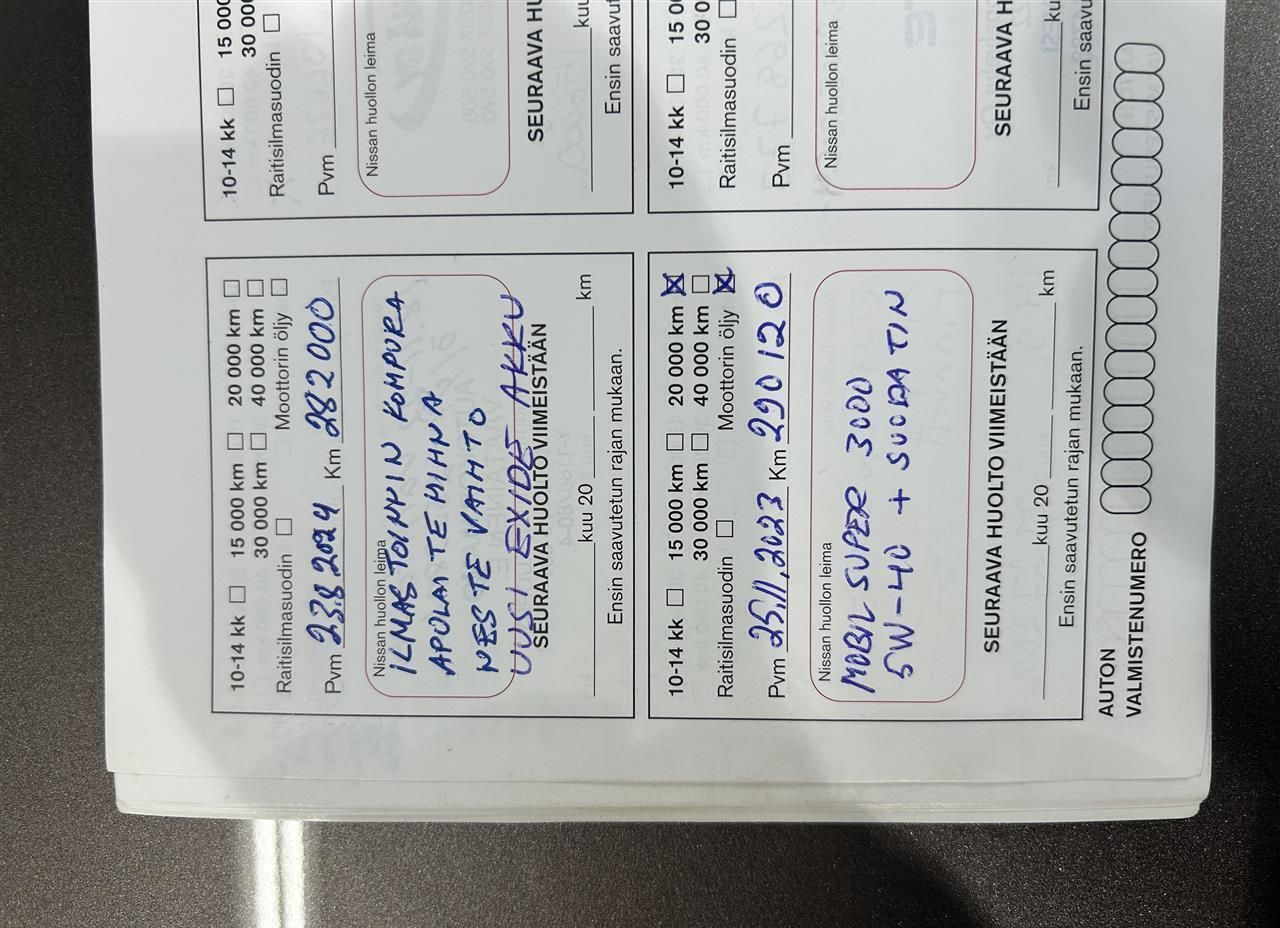 10-14 kk ☐ 15 000 km ☐ 20 000 km ☐
30 000 km ☐ 40 000 km ☐
Raitisilmasuodin ☐ Moottorin öljy ☐
Pvm 23.8.2024 Km 282000
Nissan huollon leima
ILMASTOINNIN KOMPURA
APULAITEHIHNA
NESTE VAIHTO
UUSI EXIDE AKKU
SEURAAVA HUOLTO VIIMEISTÄÄN
kuu 20 km
Ensin saavutetun rajan mukaan.
10-14 kk ☐ 15 000
30 000
Raitisilmasuodin ☐
Pvm
Nissan huollon leima
SEURAAVA HU
kuu
Ensin saavut
10-14 kk ☐ 15 000 km ☐ 20 000 km ☒
30 000 km ☐ 40 000 km ☐
Raitisilmasuodin ☐ Moottorin öljy ☒
Pvm 25.11.2023 Km 290120
Nissan huollon leima
MOBIL SUPER 3000
5W-40 + SUODATIN
SEURAAVA HUOLTO VIIMEISTÄÄN
kuu 20 km
Ensin saavutetun rajan mukaan.
10-14 kk ☐ 15
30 0
Raitisilmasuodin ☐
Pvm
Nissan huollon leima
SEURAAVA H
ku
Ensin saavu
AUTON
VALMISTENUMERO